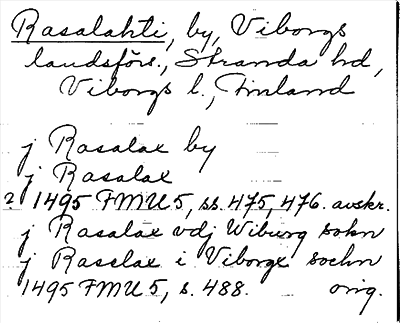 Rasalahti, by, Viborgs
landsförs., Stranda hd,
Viborgs l., Finland
j Rasalax by
j Rasalax
? 1495 FMU 5, ss. 475, 476. avskr.
j Rasalax vdj Wiburg sokn
j Raselax i Viborgx sochn
1495 FMU 5, s. 488. orig.